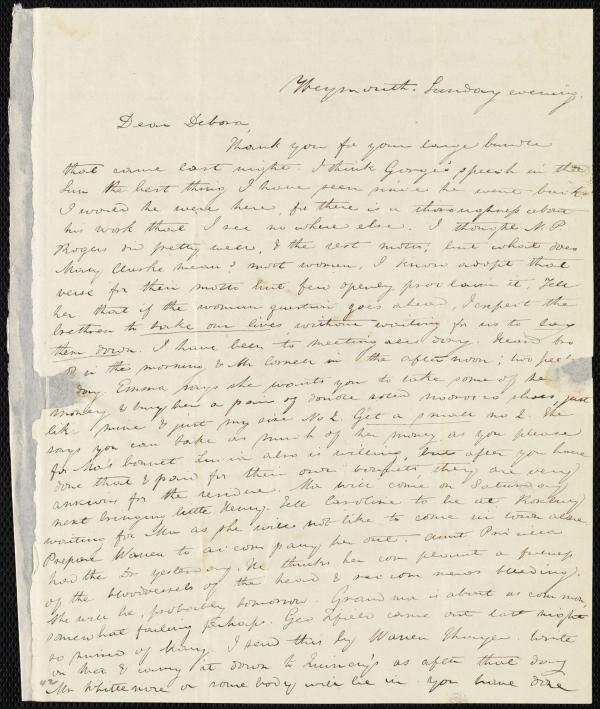 Weymouth. Sunday evening.
Dear Debora,
Thank you for your large bundle
that came last night. I think George's speech in the
Sun the best thing I have seen since he went back
I would he were here, for there is a thoroughness about
his work that I see no where else. I thought N. P.
Rogers did pretty well, & the rest mother, but what does
Mary Clarke mean? most women, I know adopt that
verse for their motto but few openly proclaim it. Tell
her that if the woman question goes ahead, I expect the
brethren to take our lives, without waiting for us to lay
them down. I have been to meeting all day. Heard
in the morning & Mr Cornell in the afternoon; two
day. Emma says she wants you to take some of he
money & buy her a pair of double soled morocco shoes, just
like mine & just my size No 2. Get a small no 2. She
says you can take as much of her money as you please
for Ma's bonnet Lucia also is willing, but after you have
done that & paid for their own bonnets they are very
anxious for the residue. Ma will come on Saturday
next bringing little Henry. Tell Caroline to be at Roxbury
waiting for Ma as she will not like to come in town alone
Prepare Warren to accompany her out. Aunt Priscilla
had the Dr yesterday. He thinks her complaint a fulness
of the bloodvessels of the head & recommends bleeding.
She will be, probably tomorrow. Grandma is about as common,
somewhat failing perhaps. Geo came out last night
so news of Mary. I send this by Warren Thayer. Write
on Wed & carry it down to Quincy's as after that day
Mr Whittemore or somebody will be in. You have done